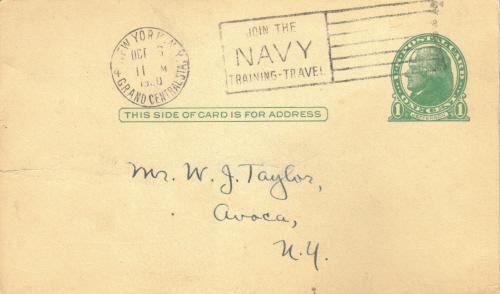 NEW YORK, N.Y.
OCT
11 M
1920
GRAND CENTRAL STA.
JOIN THE
NAVY
TRAINING-TRAVEL
POSTAL CARD
1 ONE CENT 1
JEFFERSON
THIS SIDE OF CARD IS FOR ADDRESS
Mr. W. J. Taylor,
Avoca,
N.Y.